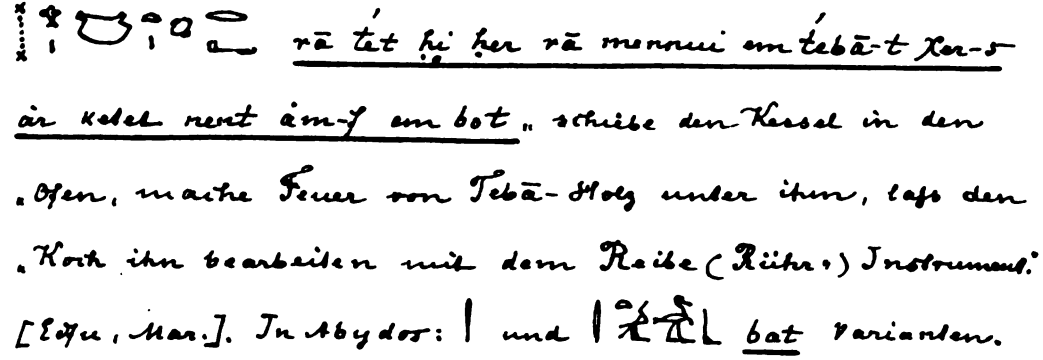 rā tét ḥi ḥer rā mennui em tébā-t χer-s
ár ketet nent ám-f em bot „ schiebe den Kessel in den
„Ofen, mache Feuer von Tebā-Holz unter ihm, laſs den
„Koch ihn bearbeiten mit dem Reibe (Rühr-) Instrument."
[Edfu, Mar.]. In Abydos: und bat Varianten.